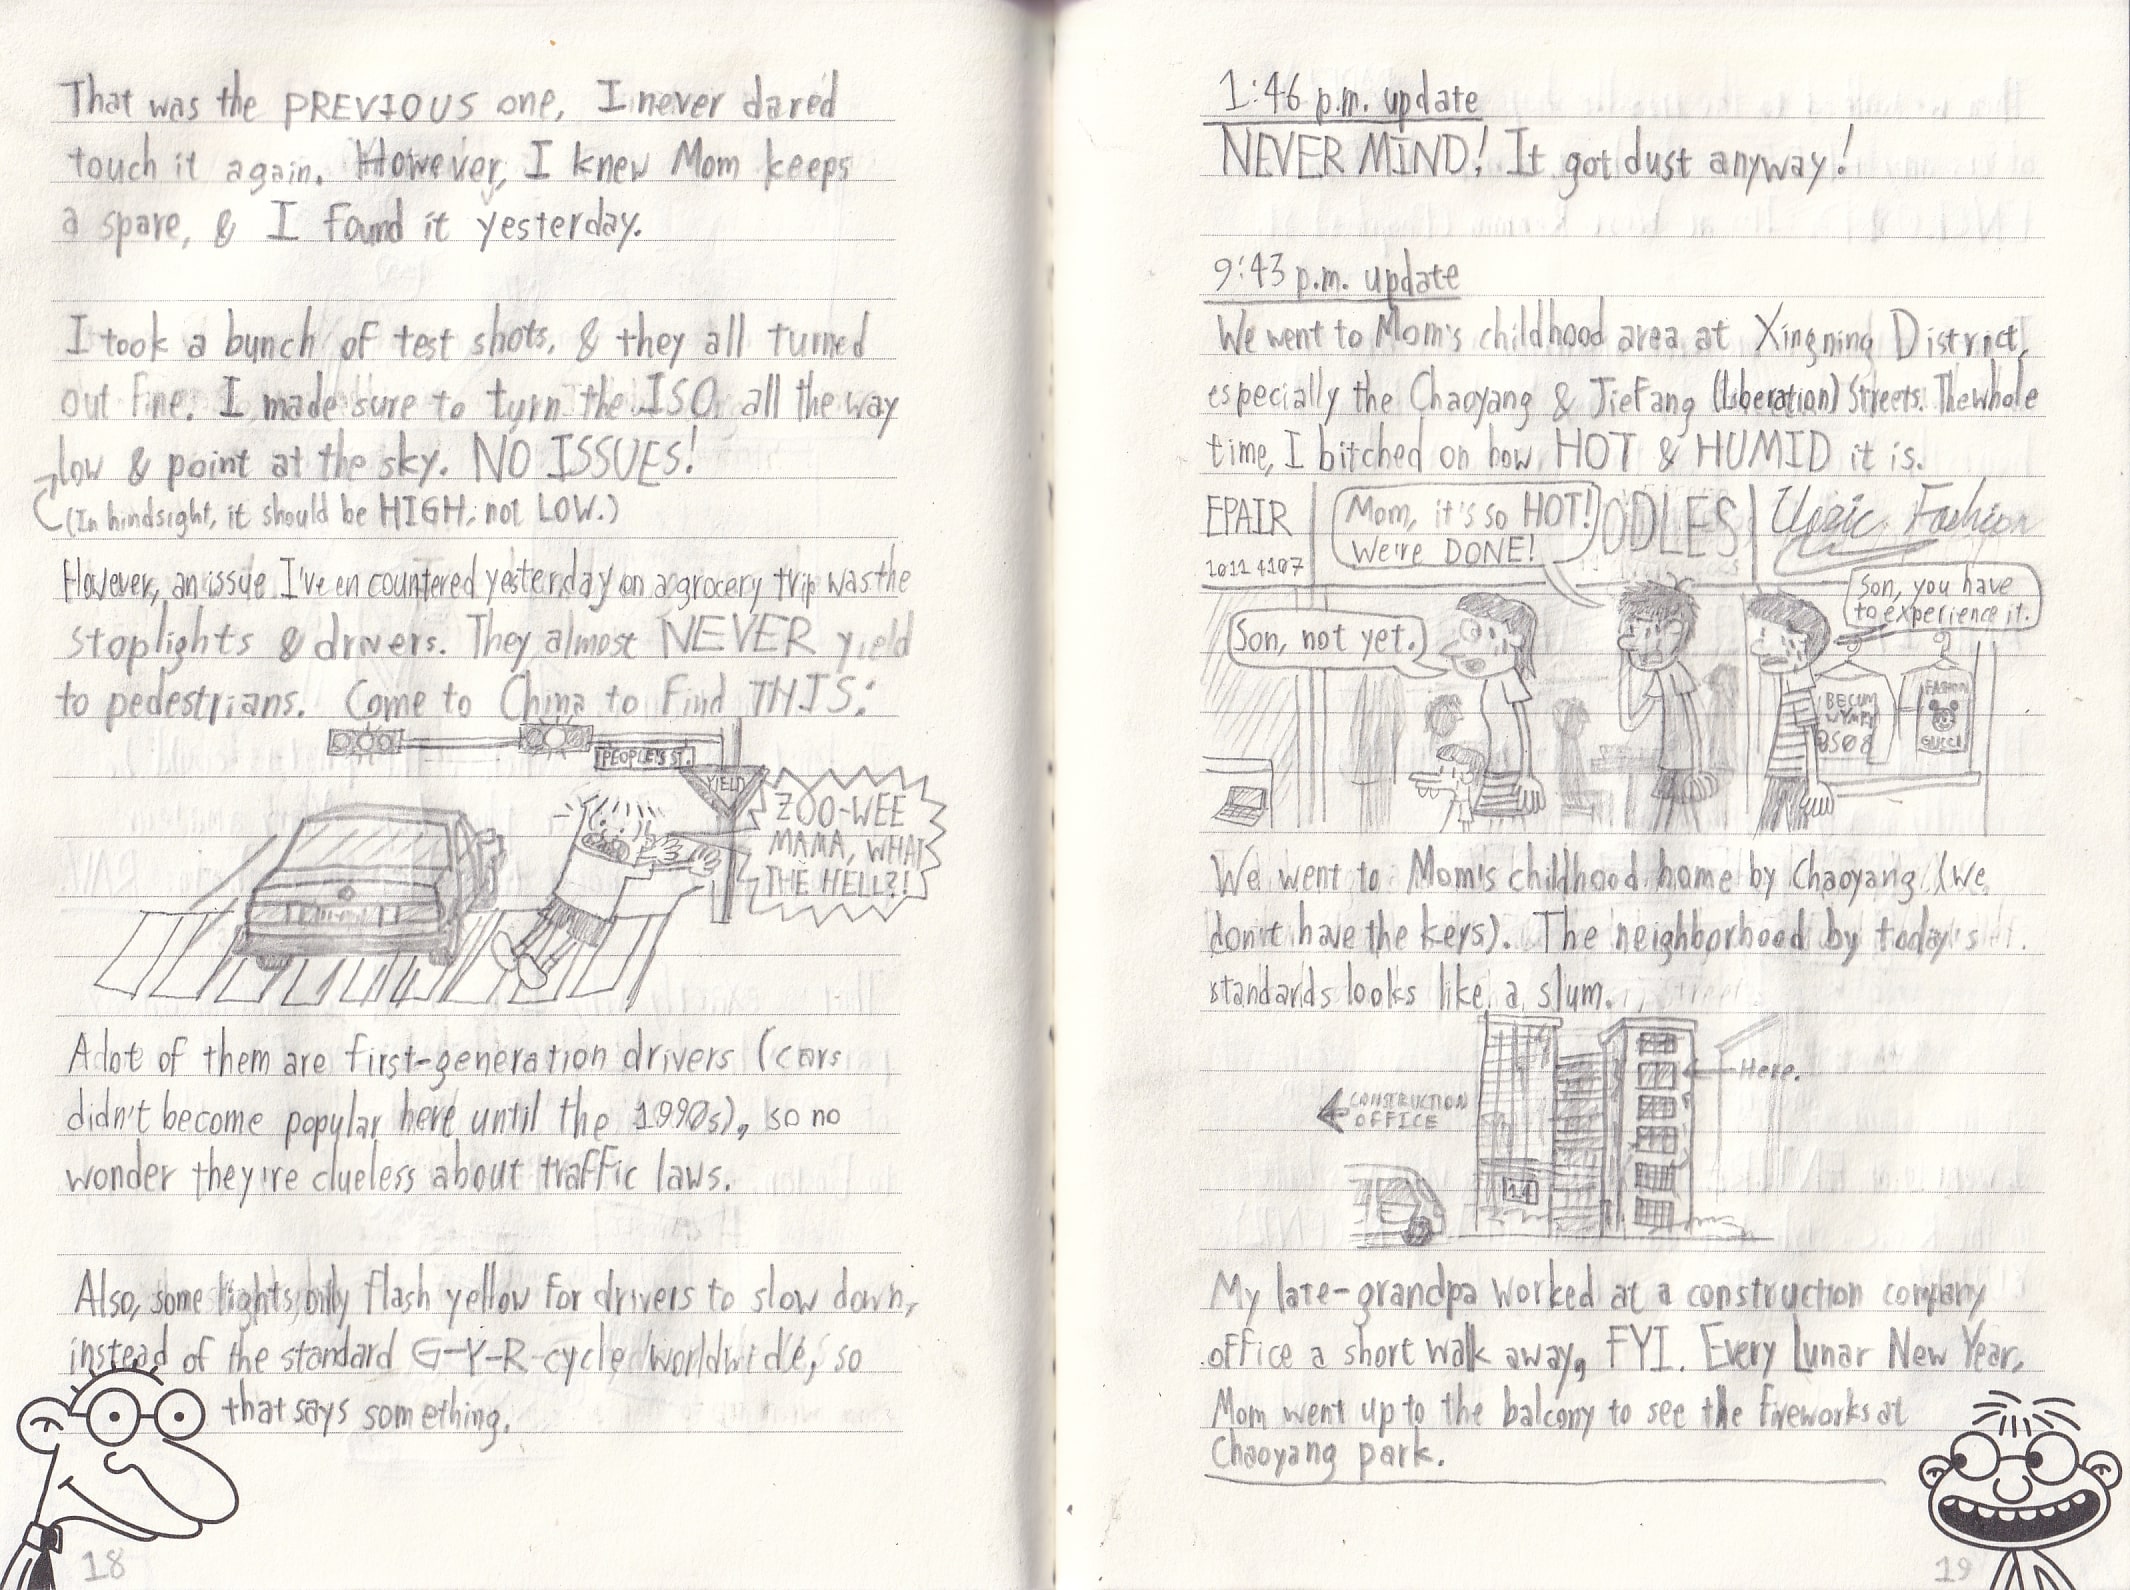 That was the PREVIOUS one, I never dared
touch it again. However, I knew Mom keeps
a spare, & I found it yesterday.
I took a bunch of test shots, & they all turned
out fine. I made sure to turn the ISO all the way
low & point at the sky. NO ISSUES!
(In hindsight, it should be HIGH, not LOW.)
However, an issue I've encountered yesterday on a grocery trip was the
stoplights & drivers. They almost NEVER yield
to pedestrians. Come to China to find THIS:
PEOPLE'S ST.
YIELD
ZOO-WEE
MAMA, WHAT
THE HELL?!
A lot of them are first-generation drivers (cars
didn't become popular here until the 1990s), so no
wonder they're clueless about traffic laws.
Also, some lights only flash yellow for drivers to slow down,
instead of the standard G-Y-R cycle worldwide, so
that says something.
18
1:46 p.m. update
NEVER MIND! It got dust anyway!
9:43 p.m. update
We went to Mom's childhood area at Xingning District,
especially the Chaoyang & JieFang (Liberation) Streets. The whole
time, I bitched on how HOT & HUMID it is.
EPAIR
1011 4107
Mom, it's so HOT!
We're DONE!
ODLES
Fashion
Son, not yet.
Son, you have
to experience it.
BECUM
WYMPY
8508
FASHION
GUCCI
We went to Mom's childhood home by Chaoyang (we
don't have the keys). The neighborhood by today's
standards looks like a slum.
Here.
CONSTRUCTION
OFFICE
14
My late-grandpa worked at a construction company
office a short walk away, FYI. Every Lunar New Year,
Mom went up to the balcony to see the fireworks at
Chaoyang park.
19